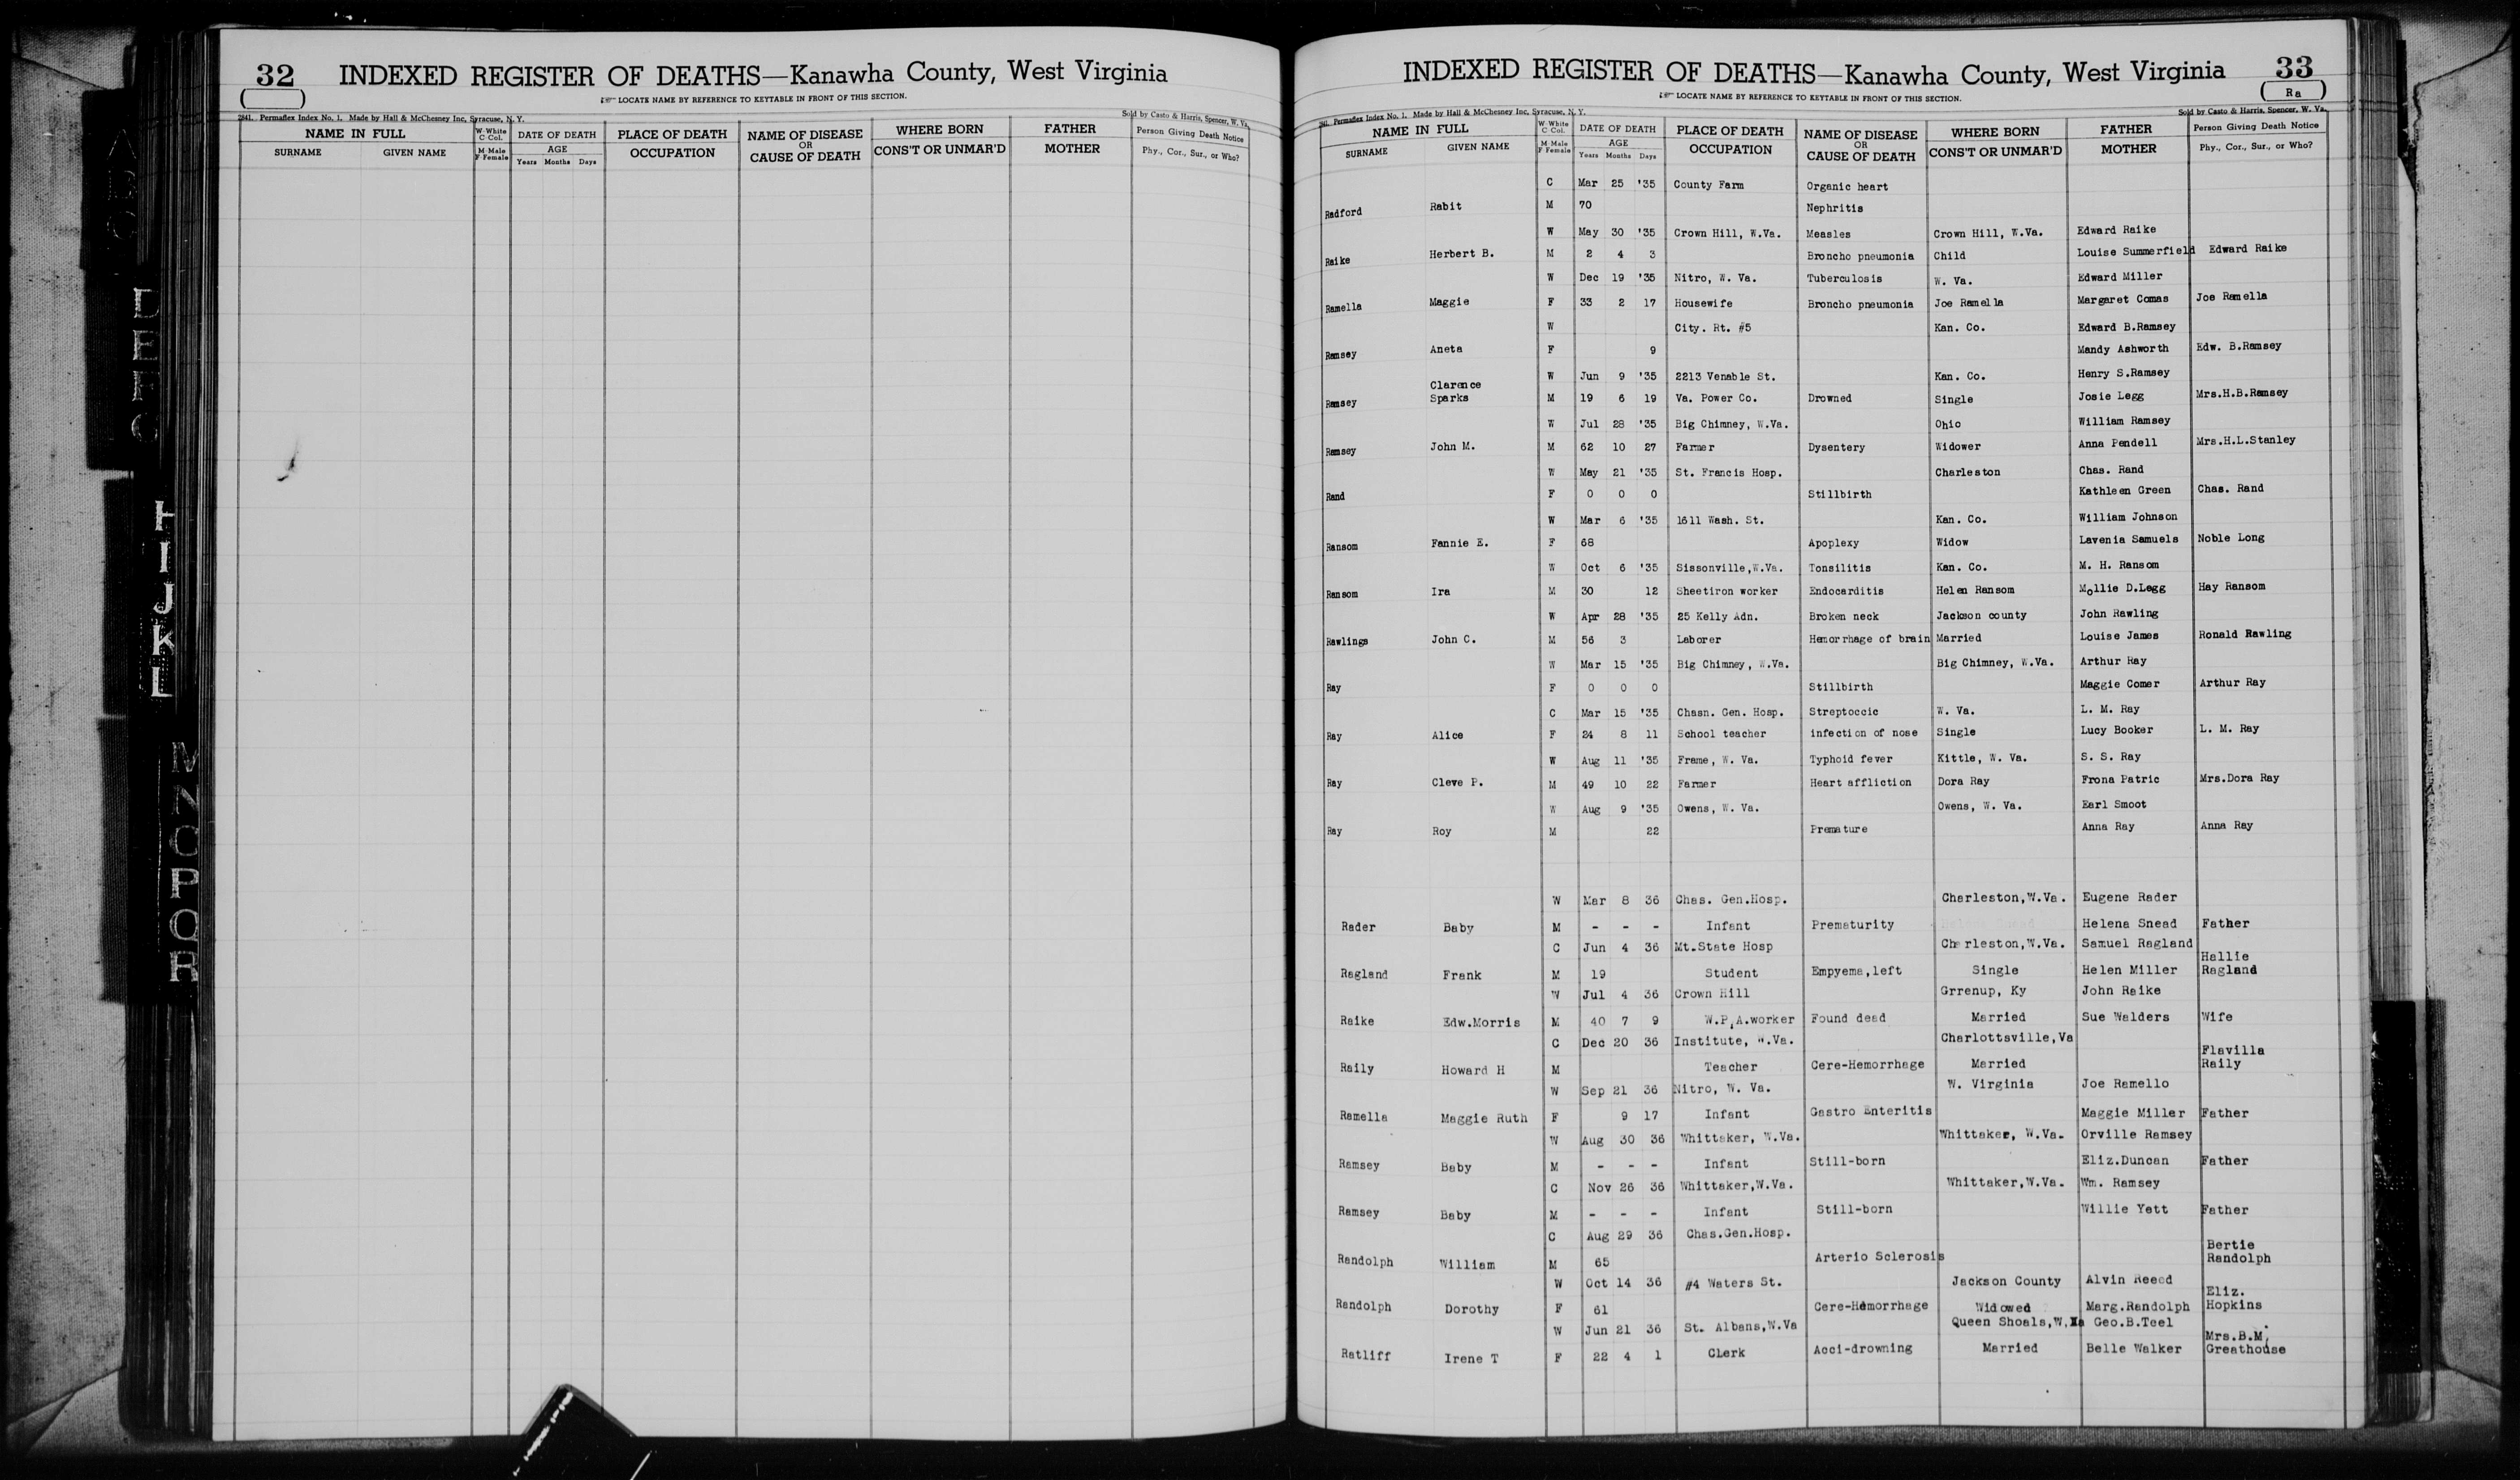 32 INDEXED REGISTER OF DEATHS—Kanawha County, West Virginia
LOCATE NAME BY REFERENCE TO KEYTABLE IN FRONT OF THIS SECTION.
2841. Permaflex Index No. 1. Made by Hall & McChesney Inc, Syracuse, N. Y. Sold by Casto & Harris, Spencer, W. Va.
NAME IN FULL W-White C Col. DATE OF DEATH PLACE OF DEATH NAME OF DISEASE WHERE BORN FATHER Person Giving Death Notice
SURNAME GIVEN NAME M-Male F-Female AGE OCCUPATION OR CAUSE OF DEATH CONS'T OR UNMAR'D MOTHER Phy., Cor., Sur., or Who?
Years Months Days
D
E
F
H
I
J
K
L
M
N
O
P
Q
R
INDEXED REGISTER OF DEATHS—Kanawha County, West Virginia 33
LOCATE NAME BY REFERENCE TO KEYTABLE IN FRONT OF THIS SECTION. Ra
Permaflex Index No. 1. Made by Hall & McChesney Inc, Syracuse, N. Y. Sold by Casto & Harris, Spencer, W. Va.
NAME IN FULL W-White C Col. DATE OF DEATH PLACE OF DEATH NAME OF DISEASE WHERE BORN FATHER Person Giving Death Notice
SURNAME GIVEN NAME M-Male F Female AGE OCCUPATION OR CAUSE OF DEATH CONS'T OR UNMAR'D MOTHER Phy., Cor., Sur., or Who?
Years Months Days
C Mar 25 '35 County Farm Organic heart
Radford Rabit M 70 Nephritis
W May 30 '35 Crown Hill, W.Va. Measles Crown Hill, W.Va. Edward Raike
Raike Herbert B. M 2 4 3 Broncho pneumonia Child Louise Summerfield Edward Raike
W Dec 19 '35 Nitro, W. Va. Tuberculosis W. Va. Edward Miller
Ramella Maggie F 33 2 17 Housewife Broncho pneumonia Joe Ramella Margaret Comas Joe Ramella
W City. Rt. #5 Kan. Co. Edward B.Ramsey
Ramsey Aneta F 9 Mandy Ashworth Edw. B.Ramsey
W Jun 9 '35 2213 Venable St. Kan. Co. Henry S.Ramsey
Ramsey Clarence Sparks M 19 6 19 Va. Power Co. Drowned Single Josie Legg Mrs.H.B.Ramsey
W Jul 28 '35 Big Chimney, W.Va. Ohio William Ramsey
Ramsey John M. M 62 10 27 Farmer Dysentery Widower Anna Pendell Mrs.H.L.Stanley
W May 21 '35 St. Francis Hosp. Charleston Chas. Rand
Rand F 0 0 0 Stillbirth Kathleen Green Chas. Rand
W Mar 6 '35 1611 Wash. St. Kan. Co. William Johnson
Ransom Fannie E. F 68 Apoplexy Widow Lavenia Samuels Noble Long
W Oct 6 '35 Sissonville,W.Va. Tonsilitis Kan. Co. M. H. Ransom
Ransom Ira M 30 12 Sheetiron worker Endocarditis Helen Ransom Mollie D.Legg Hay Ransom
W Apr 28 '35 25 Kelly Adn. Broken neck Jackson county John Rawling
Rawlings John C. M 56 3 Laborer Hemorrhage of brain Married Louise James Ronald Rawling
W Mar 15 '35 Big Chimney, W.Va. Big Chimney, W.Va. Arthur Ray
Ray F 0 0 0 Stillbirth Maggie Comer Arthur Ray
C Mar 15 '35 Chasn. Gen. Hosp. Streptoccic W. Va. L. M. Ray
Ray Alice F 24 8 11 School teacher infection of nose Single Lucy Booker L. M. Ray
W Aug 11 '35 Frame, W. Va. Typhoid fever Kittle, W. Va. S. S. Ray
Ray Cleve P. M 49 10 22 Farmer Heart affliction Dora Ray Frona Patric Mrs.Dora Ray
W Aug 9 '35 Owens, W. Va. Owens, W. Va. Earl Smoot
Ray Roy M 22 Premature Anna Ray Anna Ray
W Mar 8 36 Chas. Gen.Hosp. Charleston,W.Va. Eugene Rader
Rader Baby M - - - Infant Prematurity Helena Snead Father
C Jun 4 36 Mt.State Hosp Charleston,W.Va. Samuel Ragland
Ragland Frank M 19 Student Empyema,left Single Helen Miller Hallie Ragland
W Jul 4 36 Crown Hill Grrenup, Ky John Raike
Raike Edw.Morris M 40 7 9 W.P.A.worker Found dead Married Sue Walders Wife
C Dec 20 36 Institute, W.Va. Charlottsville,Va
Raily Howard H M Teacher Cere-Hemorrhage Married Flavilla Raily
W Sep 21 36 Nitro, W. Va. W. Virginia Joe Ramello
Ramella Maggie Ruth F 9 17 Infant Gastro Enteritis Maggie Miller Father
W Aug 30 36 Whittaker, W.Va. Whittaker, W.Va. Orville Ramsey
Ramsey Baby M - - - Infant Still-born Eliz.Duncan Father
C Nov 26 36 Whittaker,W.Va. Whittaker,W.Va. Wm. Ramsey
Ramsey Baby M - - - Infant Still-born Willie Yett Father
C Aug 29 36 Chas.Gen.Hosp.
Randolph William M 65 Arterio Sclerosis Bertie Randolph
W Oct 14 36 #4 Waters St. Jackson County Alvin Reeed
Randolph Dorothy F 61 Cere-Hemorrhage Widowed Marg.Randolph Eliz. Hopkins
W Jun 21 36 St. Albans,W.Va Queen Shoals,W.Va Geo.B.Teel
Ratliff Irene T F 22 4 1 Clerk Acci-drowning Married Belle Walker Mrs.B.M. Greathouse